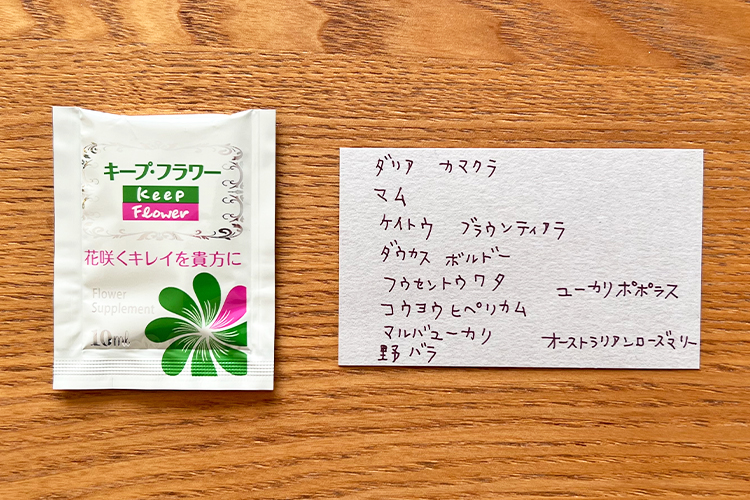 キープ・フラワー
Keep
Flower
花咲くキレイを貴方に
Flower
Supplement
10ml
ダリア カマクラ
マム
ケイトウ ブラウンティアラ
ダウカス ボルドー
フウセントウワタ
コウヨウヒペリカム
マルバユーカリ
野バラ
ユーカリポポラス
オーストラリアンローズマリー